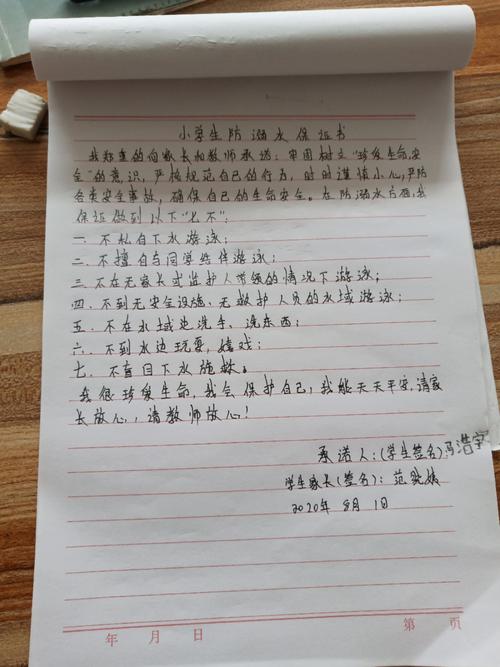 小学生防溺水保证书
我郑重的向家长和教师承诺：牢固树立“珍爱生命，安
全”的意识，严格规范自己的行为，时时谨慎小心，严防
各类安全事故，确保自己的生命安全。在防溺水方面，我
保证做到以下“七不”：
一 不私自下水游泳；
二．不擅自与同学结伴游泳；
三 不在无家长或监护人带领的情况下游泳；
四．不到无安全设施、无救护人员的水域游泳；
五．不在水域边洗手、洗东西；
六．不到水边玩耍，嬉戏；
七．不盲目下水施救。
我很珍爱生命，我会保护自己；我能天天平安，请家
长放心，请教师放心！
承诺人：(学生签名)：冯浩宇
学生家长(签名)：范
2020年 8月 1日
年 月 日 第 页